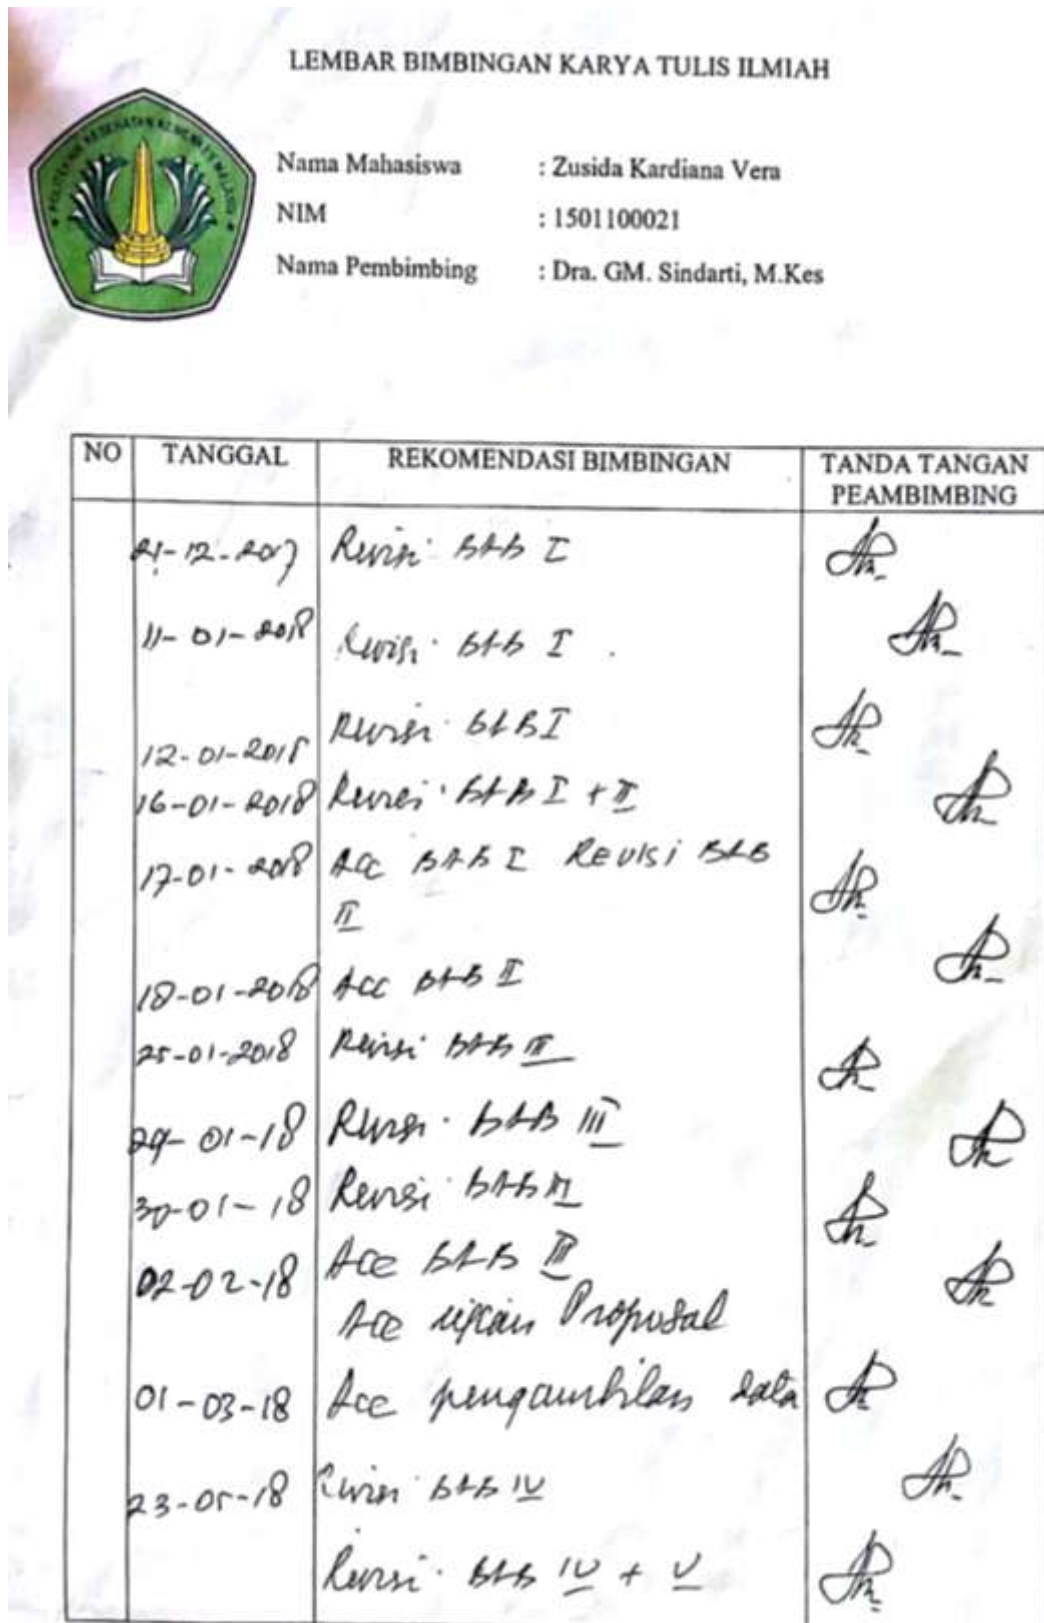 LEMBAR BIMBINGAN KARYA TULIS ILMIAH
Nama Mahasiswa : Zusida Kardiana Vera
NIM : 1501100021
Nama Pembimbing : Dra. GM. Sindarti, M.Kes
NO TANGGAL REKOMENDASI BIMBINGAN TANDA TANGAN
PEAMBIMBING
21-12-2017 Revisi BAB I
11-01-2018 Revisi BAB I
12-01-2018 Revisi BAB I
16-01-2018 Revisi BAB I + II
17-01-2018 Acc BAB I Revisi BAB
II
18-01-2018 Acc BAB II
25-01-2018 Revisi BAB III
29-01-18 Revisi BAB III
30-01-18 Revisi BAB III
02-02-18 Acc BAB III
Acc ujian Proposal
01-03-18 Acc pengambilan data
23-05-18 Revisi BAB IV
Revisi BAB IV + V